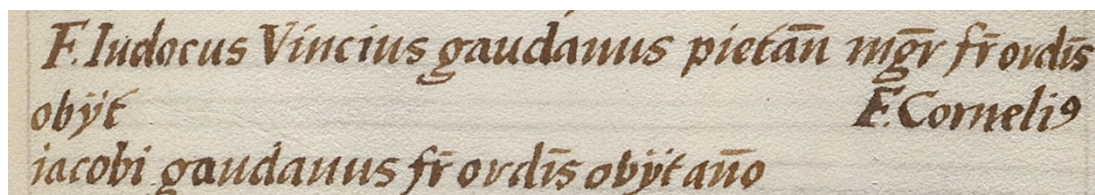 F. Iudocus Vincius gaudanus pietān mgr̄ fr̄ ordīs
obÿt F. Corneliꝯ
iacobi gaudanus fr̄ ordīs obÿt an̄o